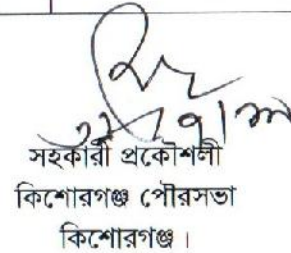 সহকারী প্রকৌশলী
কিশোরগঞ্জ পৌরসভা
কিশোরগঞ্জ।